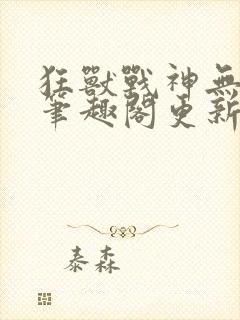 狂獸戰神無
筆趣閣更新
泰森